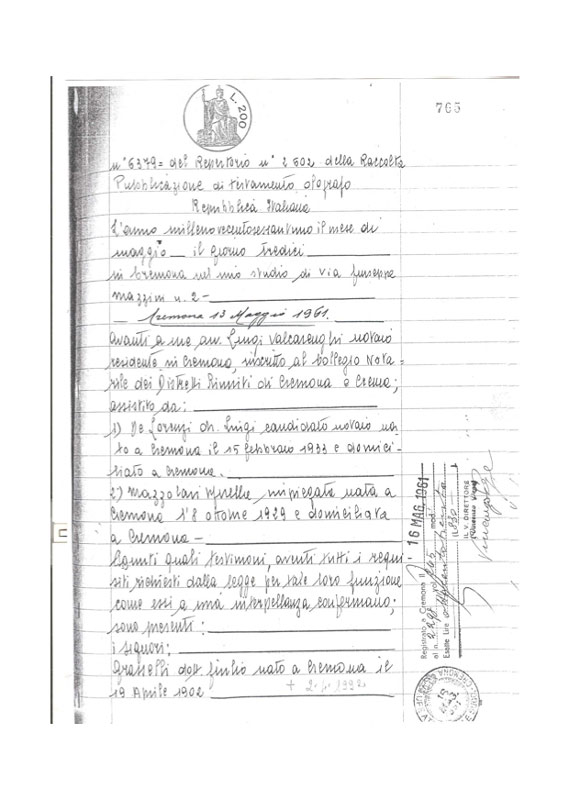 L. 200
765
n° 6379= del Repertorio n° 2502 della Raccolta
Pubblicazione di testamento olografo
Repubblica Italiana
L'anno millenovecentosessantuno il mese di
maggio il giorno tredici
in Cremona nel mio studio di via Giuseppe
Mazzini n. 2 -
Cremona 13 Maggio 1961.
Avanti a me avv. Luigi Valcarenghi notaio
residente in Cremona, iscritto al Collegio Nota-
rile dei Distretti Riuniti di Cremona e Crema;
assistito da:
1) De Lorenzi dr. Luigi candidato notaio na
to a Cremona il 15 febbraio 1933 e domici-
liato a Cremona.
2) Mazzolari impiegata nata a
Cremona l'8 ottobre 1929 e domiciliata
a Cremona -
quali testimoni, aventi tutti i requi
siti richiesti dalla legge per tale loro funzione
come essi a mia interpellanza confermano;
sono presenti:
i signori:
Grasselli dott. Giulio nato a Cremona il
19 Aprile 1902
Registrato a Cremona il 16 MAG. 1961
al n. mod.
Esatte Lire
IL V. DIRETTORE